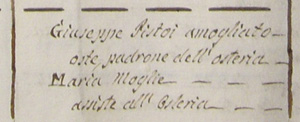 Giuseppe Pistoi amogliato
oste, padrone dell' osteria
Maria Moglie
asiste all' Osteria